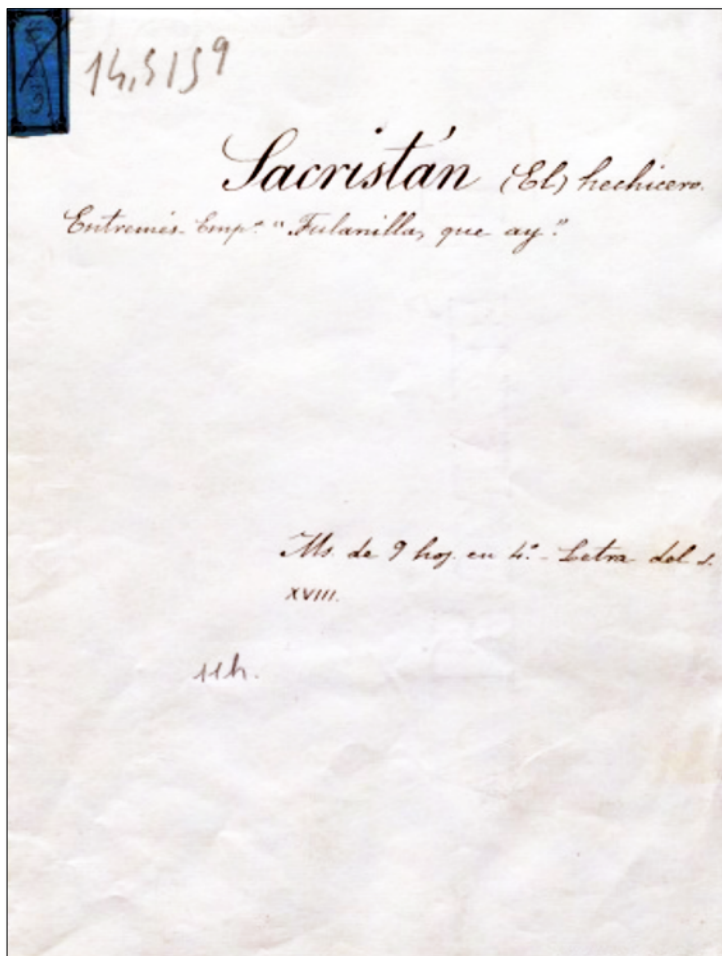 14,515⁹
Sacristán (El) hechicero.
Entremés. Emp.ª "Fulanilla, que ay."
Ms. de 9 hoj. en 4.º - Letra del s.
XVIII.
11 h.